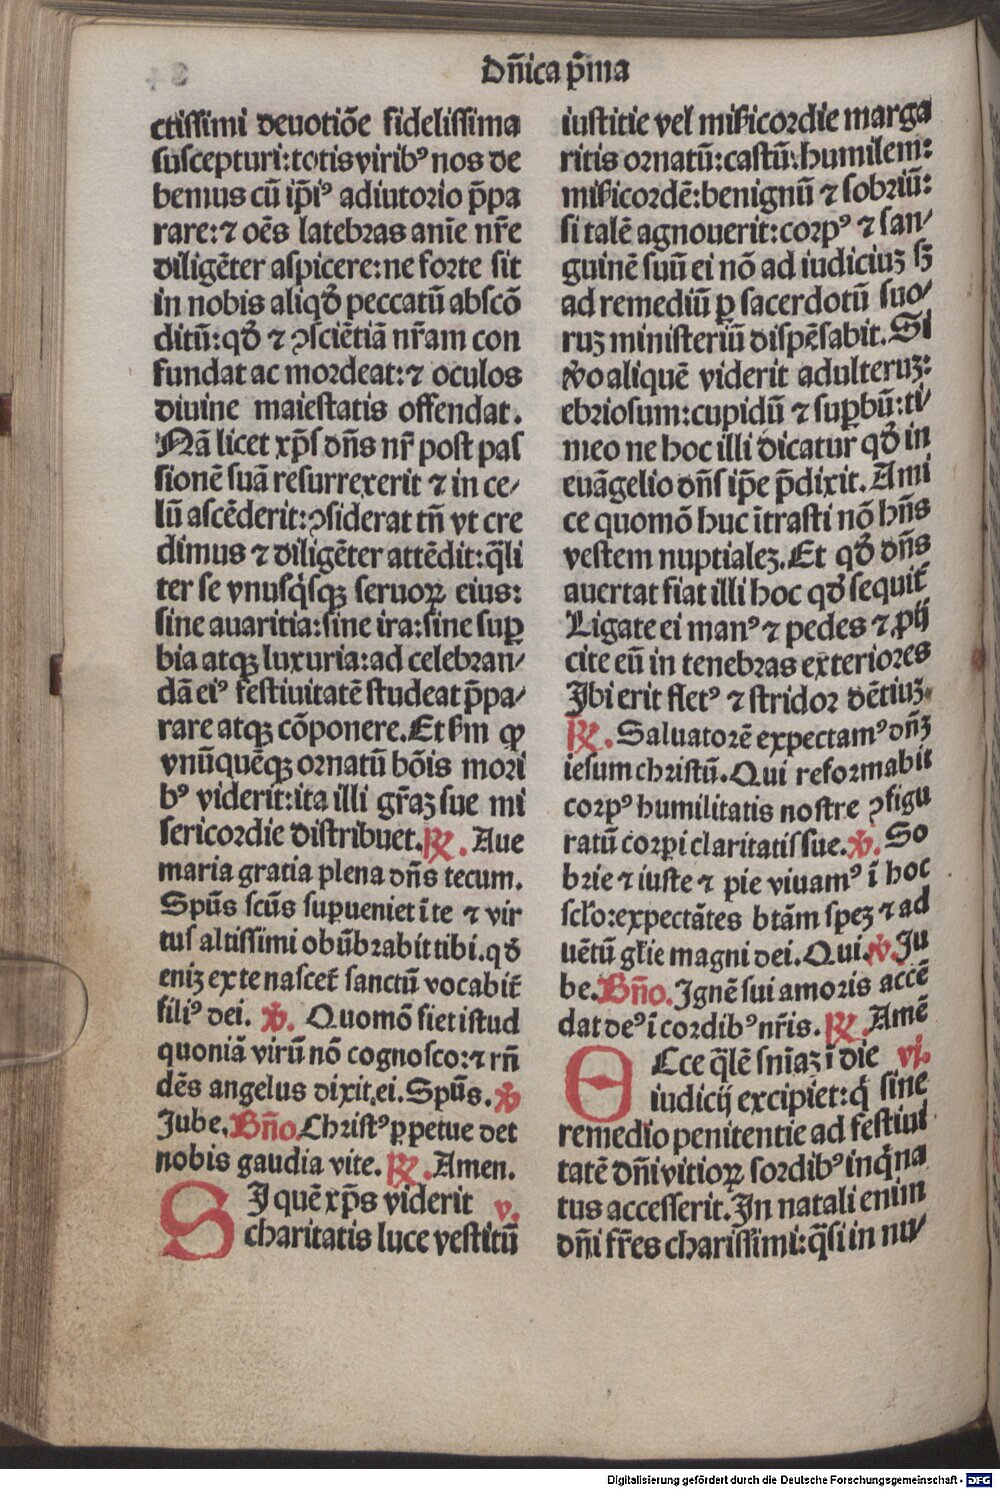 Dn̄ica p̄ma
ctissimi deuotiōe fidelissima
suscepturi: totis viribꝰ nos de
bemus cū ip̄iꝰ adiutorio p̄pa
rare: ⁊ oēs latebras anīe nr̄e
diligēter aspicere: ne forte sit
in nobis aliqđ peccatū abscō
ditū: qđ ⁊ ꝯsciētiā nr̄am con
fundat ac mordeat: ⁊ oculos
diuine maiestatis offendat.
Nā licet xp̄s dn̄s nr̄ post pas
sionē suā resurrexerit ⁊ in ce⸗
lū ascēderit: ꝯsiderat tn̄ vt cre
dimus ⁊ diligēter attēdit: q̄li
ter se vnusq̇sqꝫ seruoꝝ eius:
sine auaritia: sine ira: sine suꝑ
bia atqꝫ luxuria: ad celebran⸗
dā eiꝰ festiuitatē studeat p̄pa⸗
rare atqꝫ cōponere. Et ẜm ꝙ
vnūquēqꝫ ornatū bōis mori
bꝰ viderit: ita illi gr̄aꝫ sue mi
sericordie distribuet. ℟. Aue
maria gratia plena dn̄s tecum.
Spūs scūs suꝑueniet ī te ⁊ vir
tus altissimi obūbrabit tibi. qđ
eniꝫ ex te nascet᷑ sanctū vocabit᷑
filiꝰ dei. ℣. Quomō fiet istud
quoniā virū nō cognosco: ⁊ rn̄
dēs angelus dixit ei. Spūs. ℣
Jube. Bn̄o. Christꝰ ꝑpetue det
nobis gaudia vite. ℟. Amen.
SJ quē xp̄s viderit v.
charitatis luce vestitū
iustitie vel mīcordie marga
ritis ornatū: castū: humilem:
mīcordē: benignū ⁊ sobriū:
si talē agnouerit: corpꝰ ⁊ san⸗
guinē suū ei nō ad iudiciuꝫ sꝫ
ad remediū ꝑ sacerdotū suo⸗
ruꝫ ministeriū dispēsabit. Si
ꝟo aliquē viderit adulteruꝫ:
ebriosum: cupidū ⁊ suꝑbū: ti⸗
meo ne hoc illi dicatur qđ in
euāgelio dn̄s ip̄e p̄dixit. Ami
ce quomō huc ītrasti nō hn̄s
vestem nuptialeꝫ. Et qđ dn̄s
auertat fiat illi hoc qđ sequit᷑
Ligate ei manꝰ ⁊ pedes ⁊ ꝓij
cite eū in tenebras exteriores
Jbi erit fletꝰ ⁊ stridor dētiuꝫ.
℟. Saluatorē expectamꝰ dn̄ꝫ
iesum christū. Qui reformabit
corpꝰ humilitatis nostre ꝯfigu
ratū corꝑi claritatis sue. ℣. So
brie ⁊ iuste ⁊ pie viuamꝰ ī hoc
scl̄o: expectātes btām speꝫ ⁊ ad
uētū gl̄ie magni dei. Qui. ℣ Ju
be. Bn̄o. Jgnē sui amoris accē
dat deꝰ ī cordibꝰ nr̄is. ℟. Amē
ECce q̄lē sn̄iaꝫ ī die vj.
iudicij excipiet: q̇ sine
remedio penitentie ad festiui
tatē dn̄i vitioꝝ sordibꝰ inq̇na
tus accesserit. Jn natali enim
dn̄i fr̄es charissimi: q̄si in nu⸗